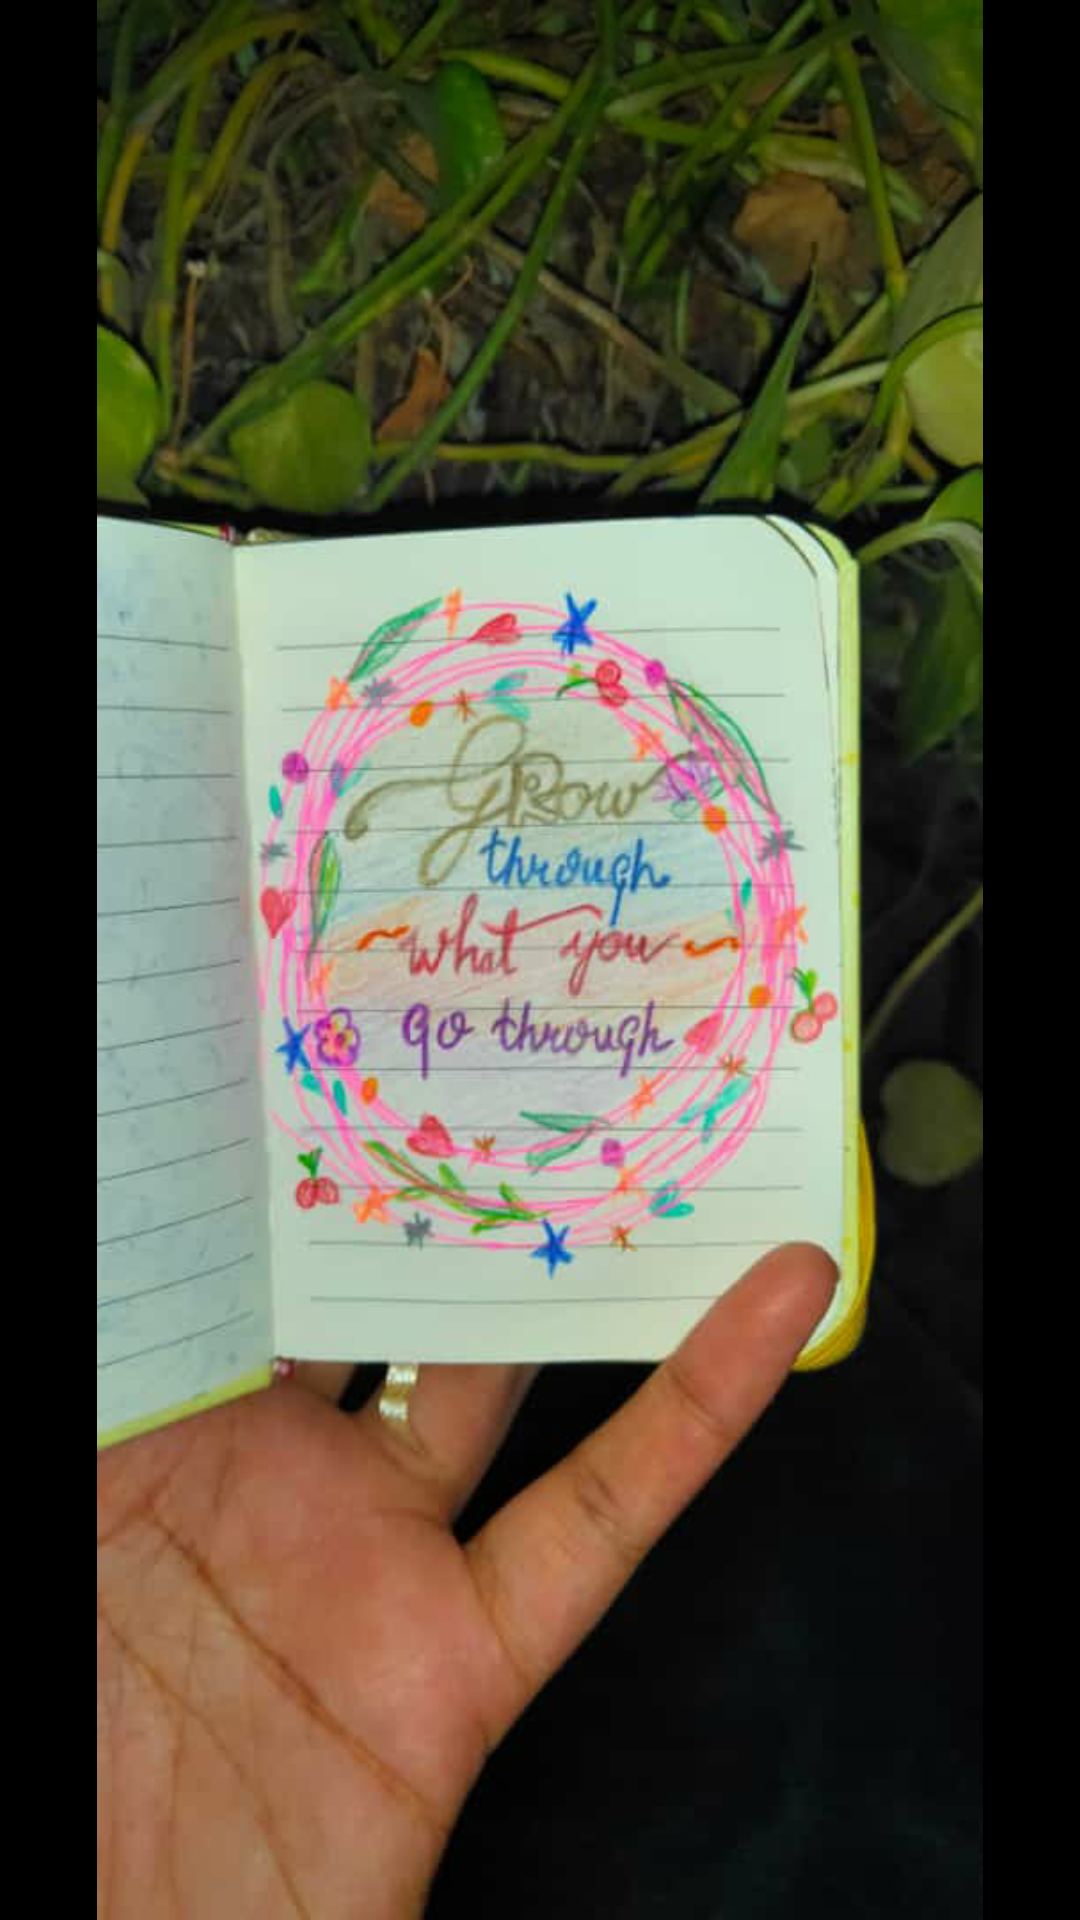 GRow
through
~what you~
go through